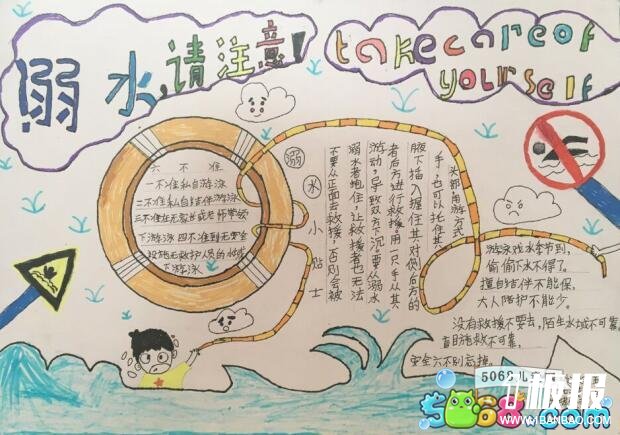 溺水,请注意!
takecareof
yourself
六不准
一不准私自游泳
二不准私自结伴游泳
三不准在无家长或老师带领
下游泳 四不准到无安全
设施无救护人员的水域
下游泳
溺水小贴士
不要从正面去救援,否则会被
溺水者抱住,让救援者也无法
游动,导致双方下沉,要从溺水
者后方进行救援,用一只手从其
腋下插入握住其对侧后方的
手,也可以托住其
头部用游方式
游泳戏水季节到,
偷偷下水不得了。
擅自结伴不能保,
大人陪护不能少。
没有救援不要去,陌生水域不可靠,
盲目施救不可靠,
安全六不别忘掉
5068儿童
小报
5068.com
www.1BANBAO.COM